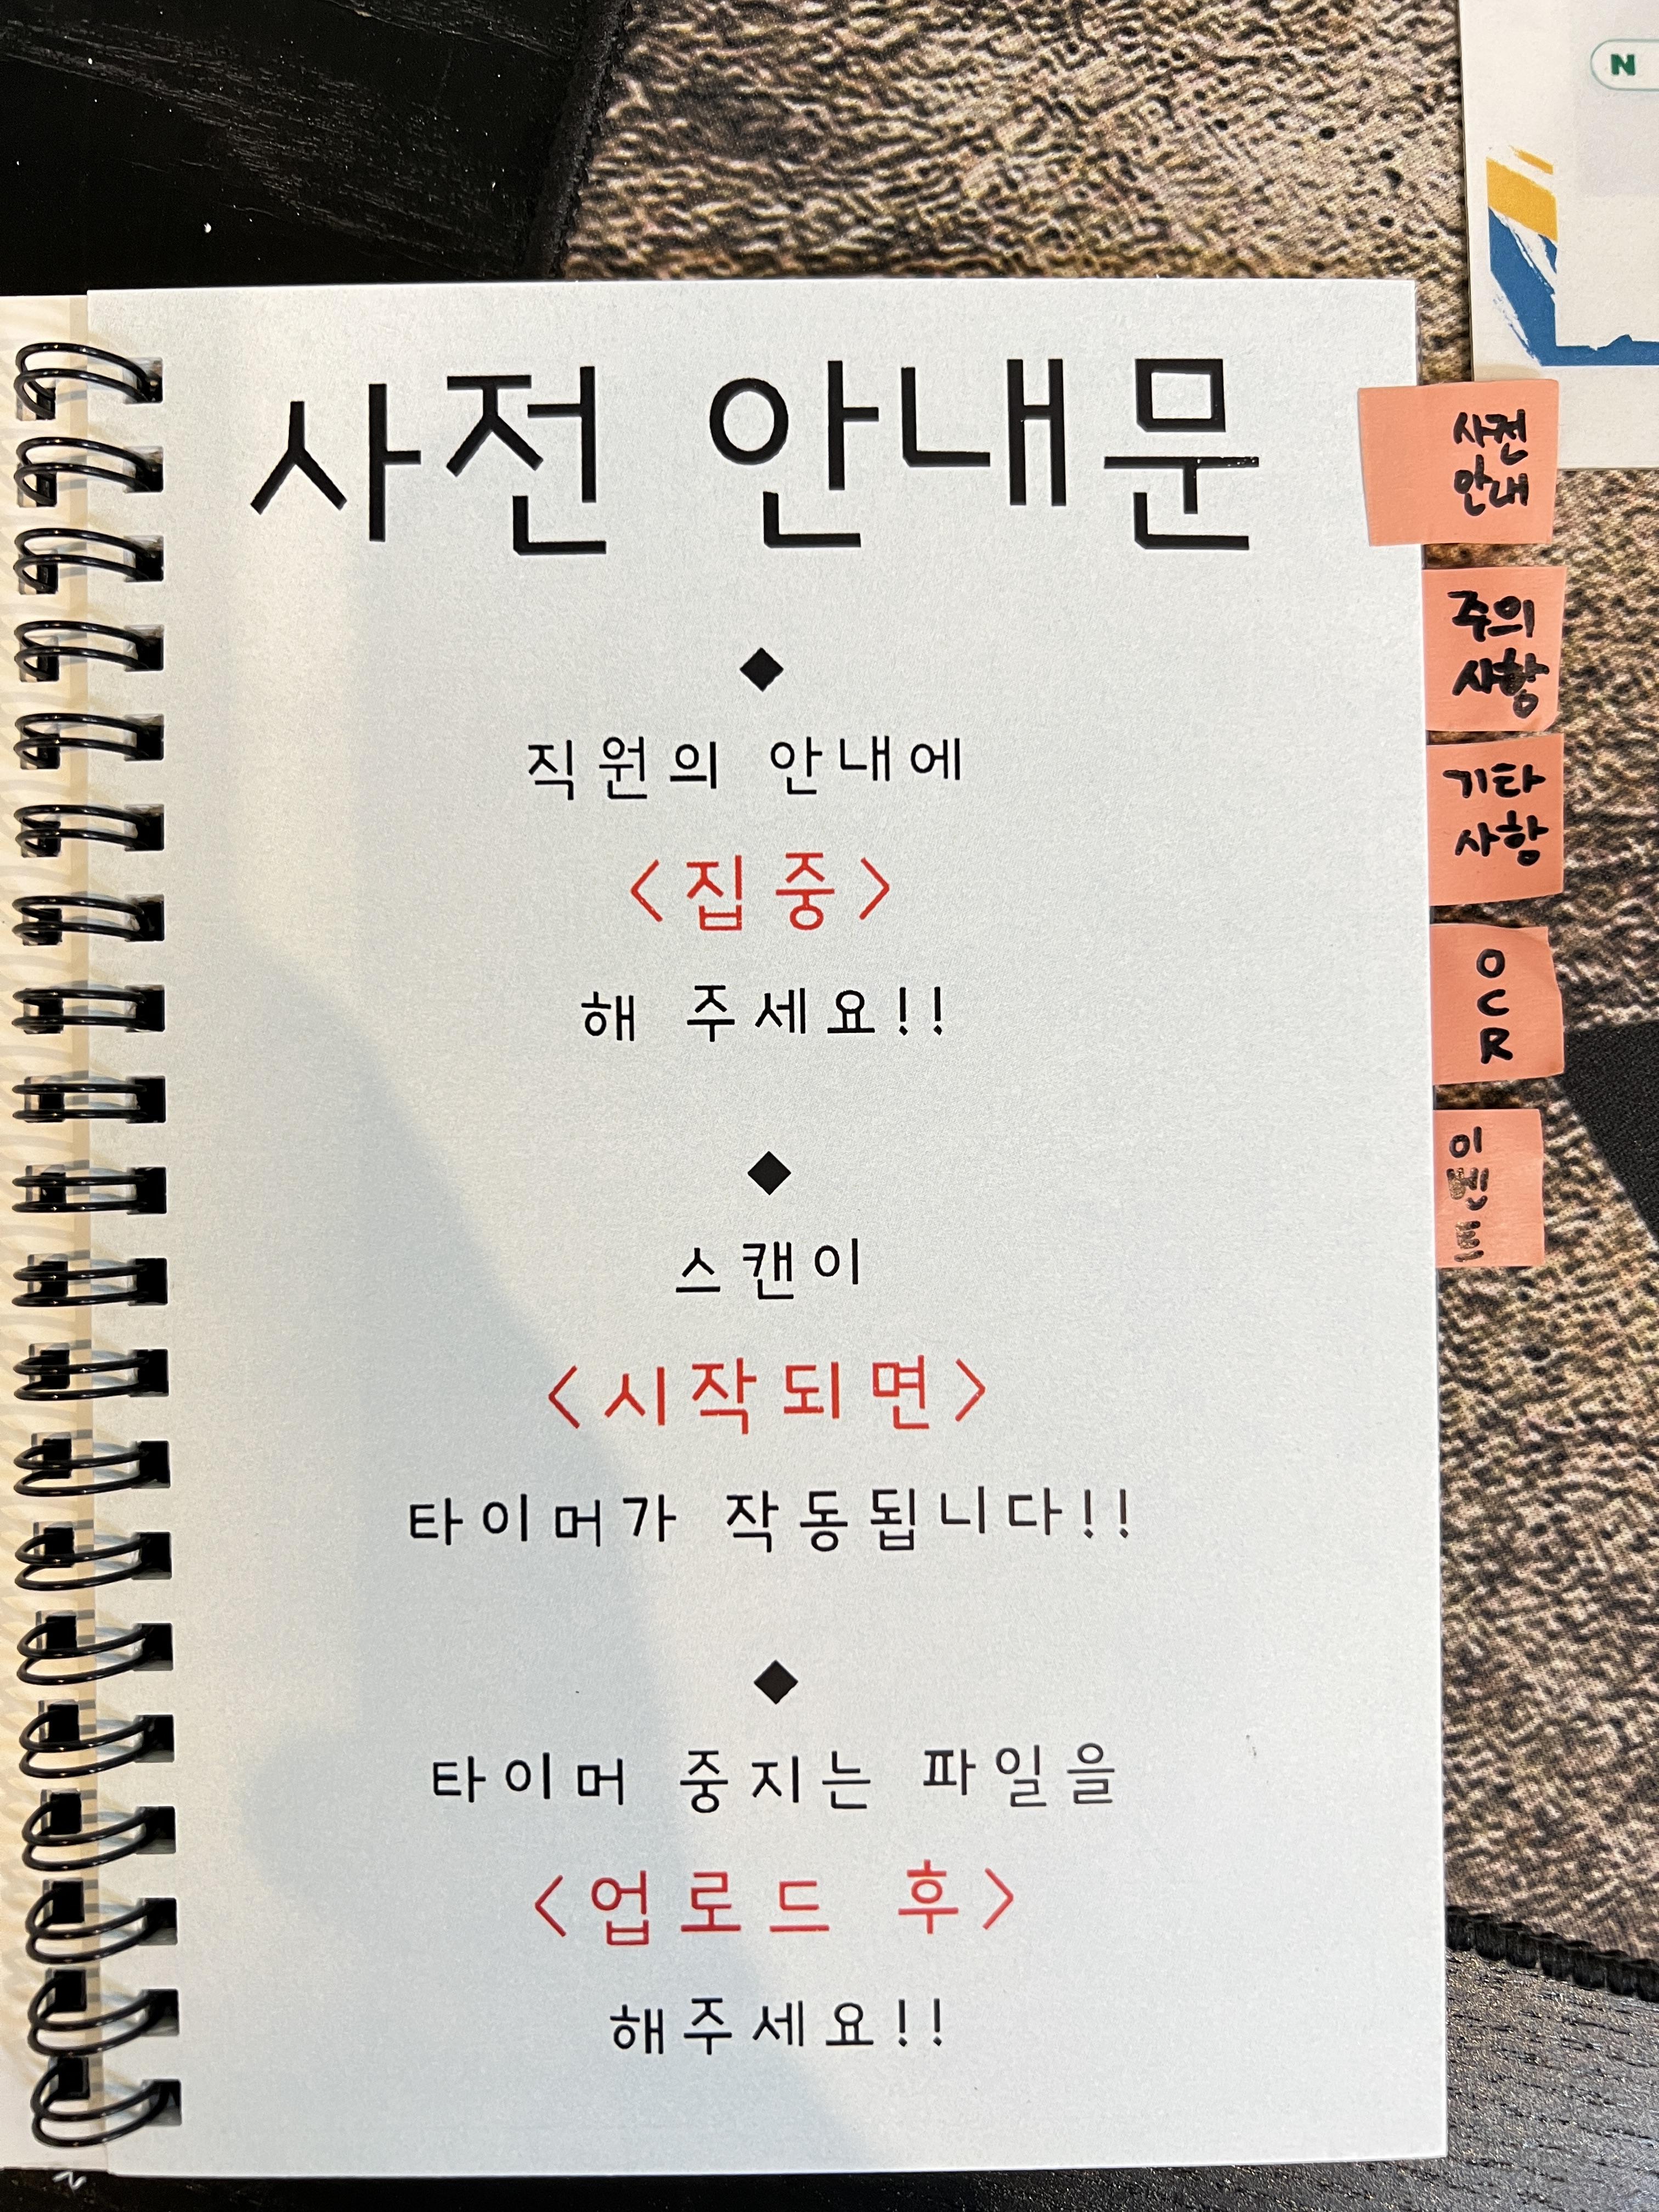 사전 안내문
◆
직원의 안내에
<집중>
해 주세요!!
◆
스캔이
<시작되면>
타이머가 작동됩니다!!
◆
타이머 중지는 파일을
<업로드 후>
해주세요!!
사전
안내
주의
사항
기타
사항
O
C
R
이
벤
트
N